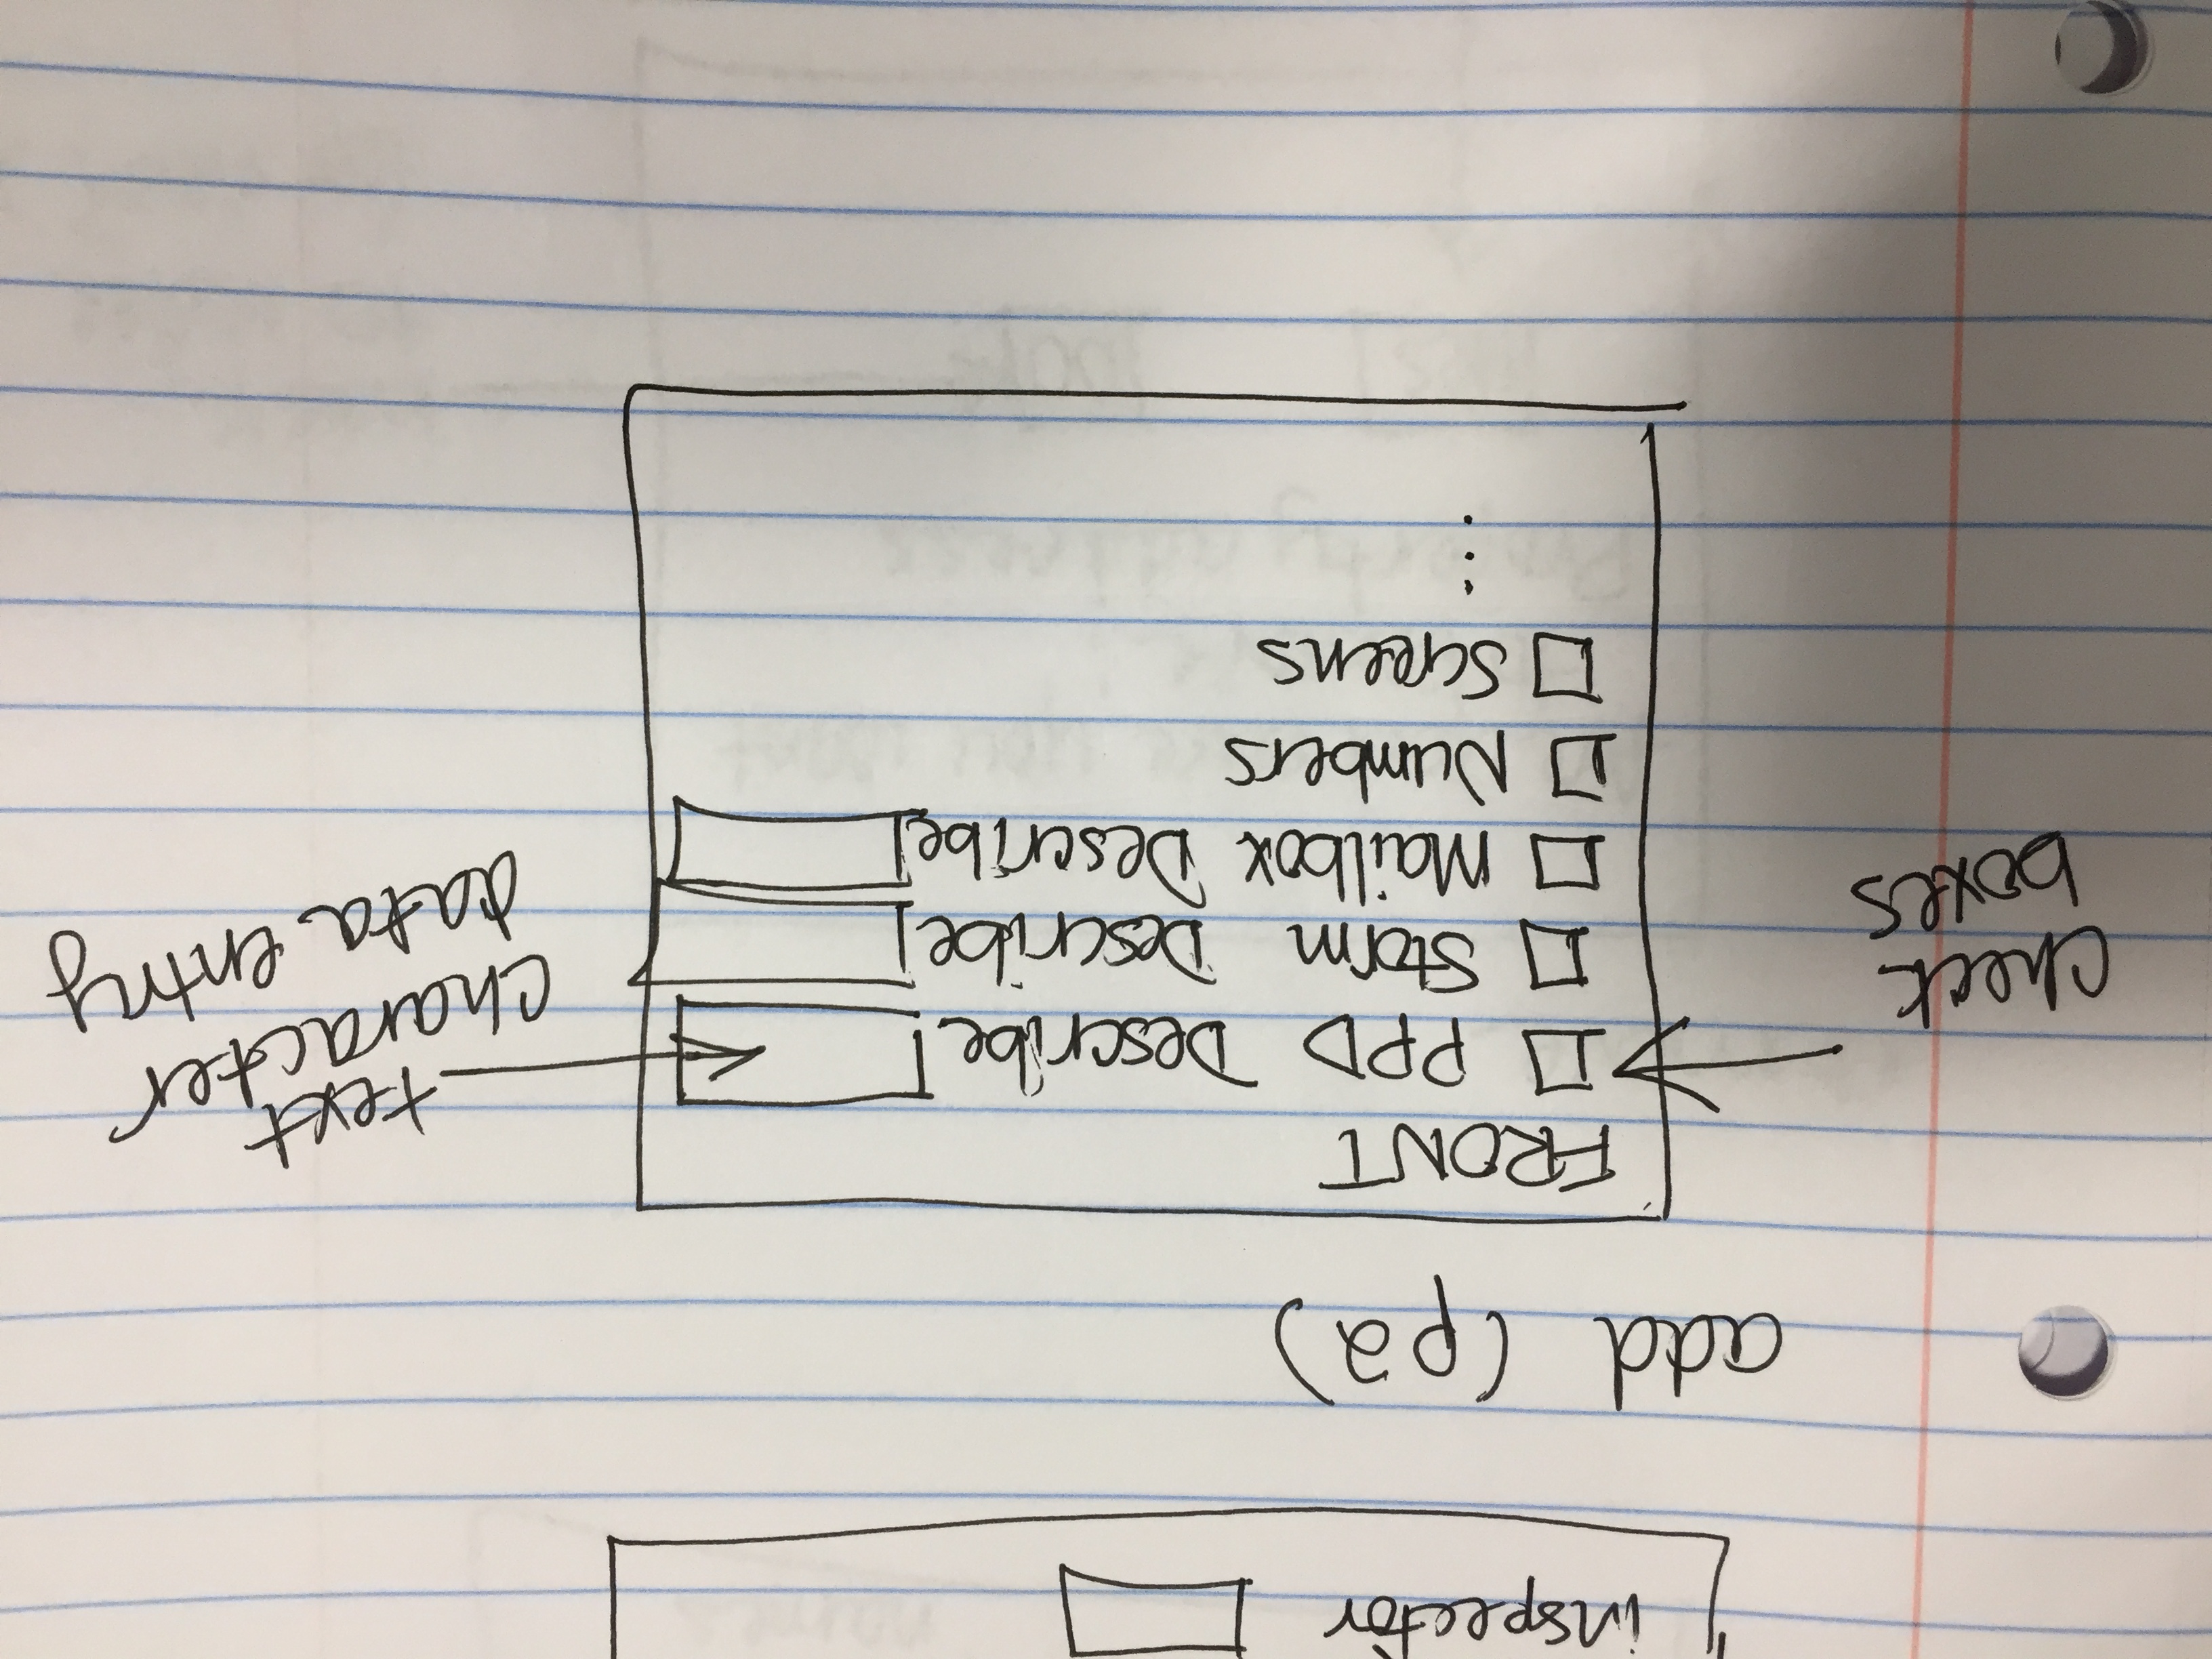 inspector
add (p2)
FRONT
PPD Describe
Storm Describe
Mailbox Describe
Numbers
Screens
⋮
check
boxes
text
character
data entry